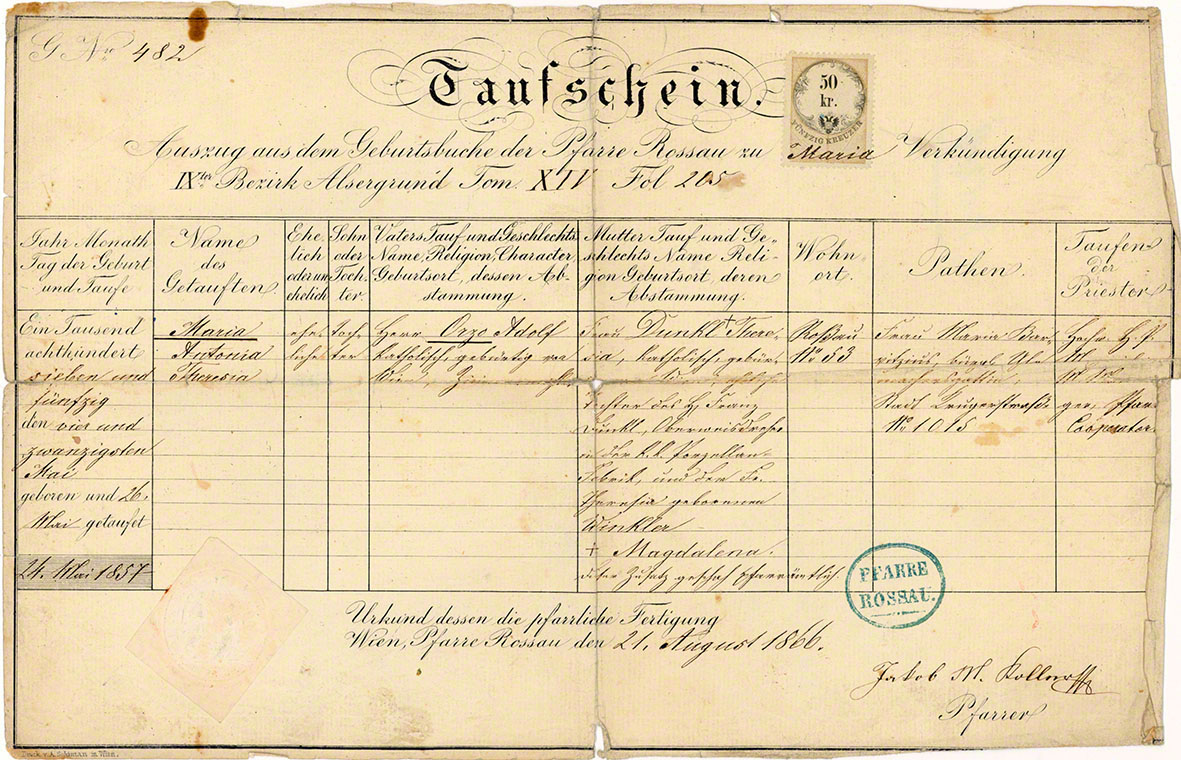 G. No 482
Taufschein.
50
kr.
FÜNFZIG KREUZER
Auszug aus dem Geburtsbuche der Pfarre Rossau zu Maria Verkündigung
IXter Bezirk Alsergrund Tom. XIV Fol 205
Jahr Monath
Tag der Geburt
und Taufe
Name
des
Getauften
Ehe
lich
oder un
ehelich
Sohn
oder
Toch-
ter.
Vaters Tauf und Geschlechts
Name, Religion, Character
Geburtsort, dessen Ab-
stammung.
Mutter Tauf und Ge-
schlechts Name Reli-
gion Geburtsort deren
Abstammung.
Wohn-
ort.
Pathen.
Taufende
Der
Priester
Ein Tausend
achthundert
sieben und
fünfzig
den vier und
zwanzigsten
Mai
geboren und 26.
Mai getauft
24. Mai 1857
Maria
Antonia
Theresia
ehe-
liche
Toch-
ter
Herr Orzo Adolf
katholisch, gebürtig von
Wien,
Frau Dunkl + There-
sia, katholisch, gebür-
Tochter des H. Franz
Dunkl, Oberweißdreher
in der k.k. Porzellan-
Fabrik, und der
Theresia geborenen
Winkler
+ Magdalena.
dieser Zusatz geschah pfarrämtlich.
Roßau
No 53
Frau Maria
Stadt Krugerstraße
No 1015
Hochw. H. P.
ger, Pfarr
Cooperator.
PFARRE
ROSSAU.
Urkund dessen die pfarrliche Fertigung
Wien, Pfarre Rossau den 21. August 1866.
Jakob M. Koller
Pfarrer